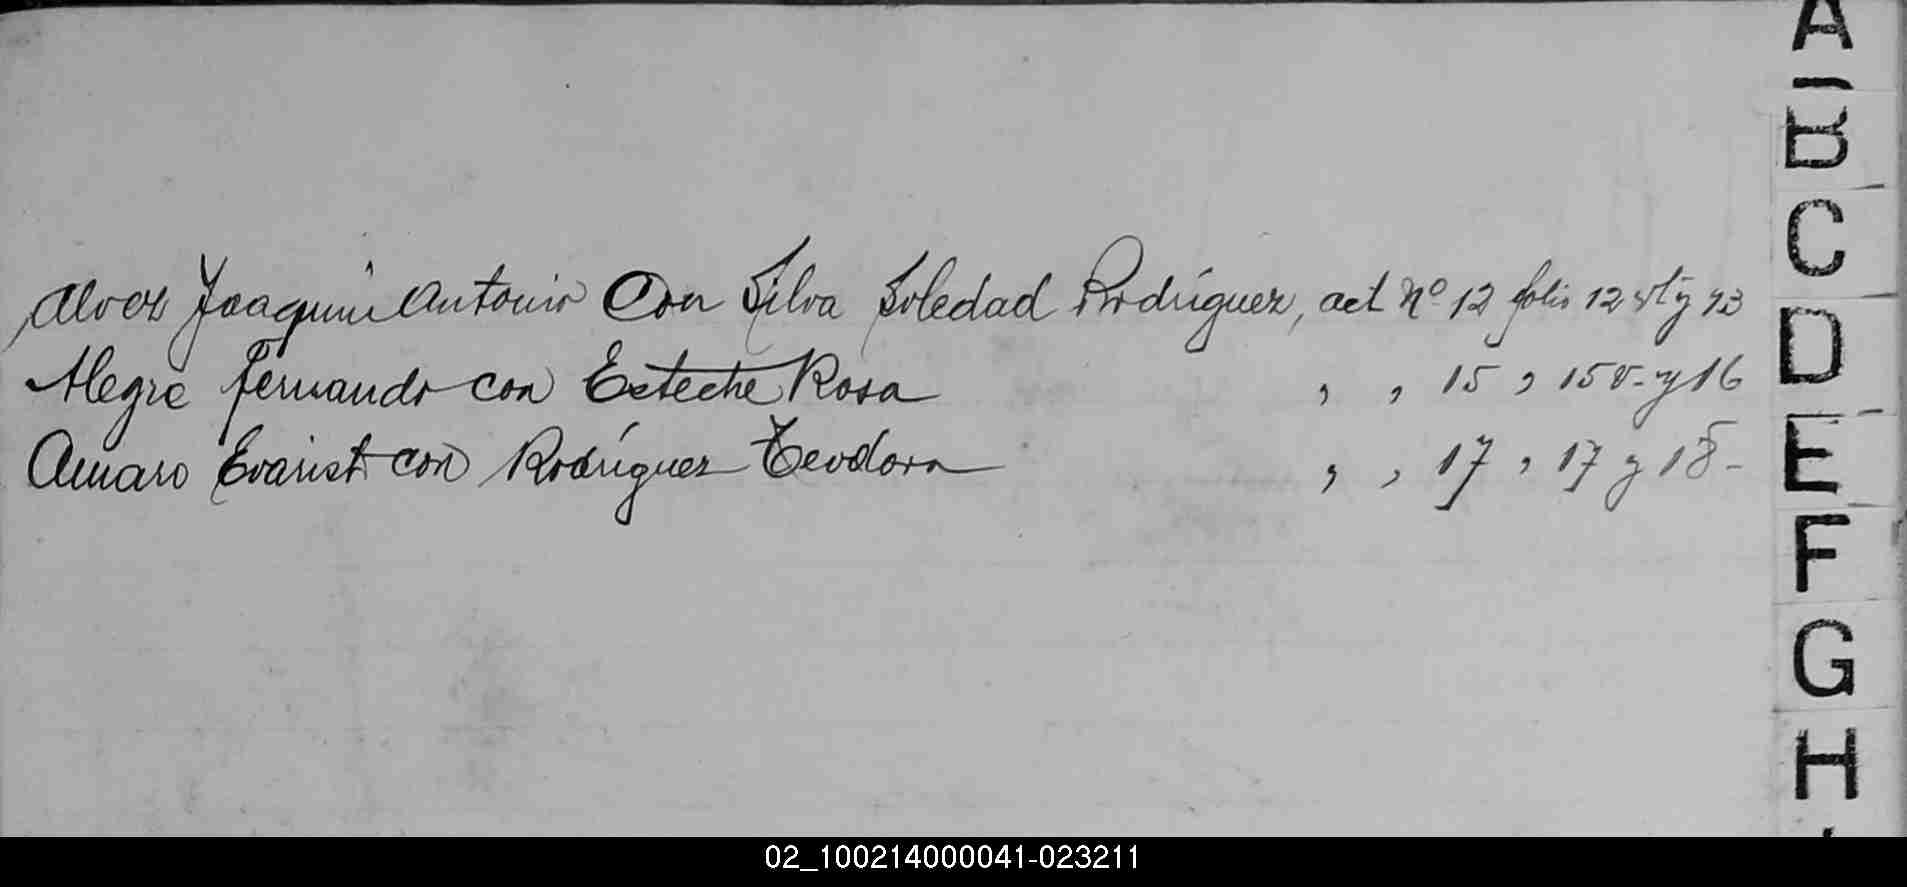 Alvez Joaquin Antonio Con Silva Soledad Rodríguez, act Nº 12 folio 12 vt y 13
Alegre Fernando con Esteche Rosa , , 15 , 15 v. y 16
Amaro Evarist con Rodríguez Teodora , , 17 , 17 y 18 -
A
B
C
D
E
F
G
H
02_100214000041-023211